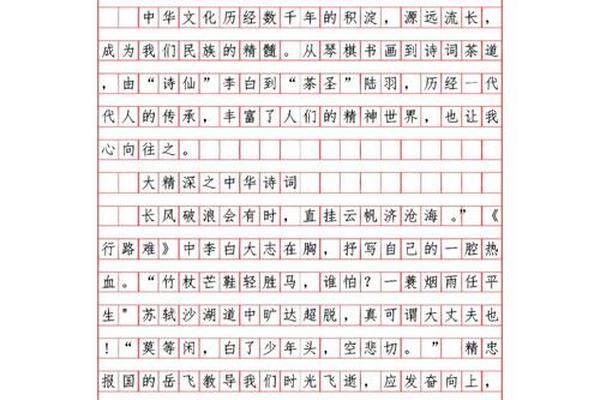 中华文化历经数千年的积淀，源远流长，
成为我们民族的精髓。从琴棋书画到诗词茶道
，由“诗仙”李白到“茶圣”陆羽，历经一代
代人的传承，丰富了人们的精神世界，也让我
心向往之。
大精深之中华诗词
长风破浪会有时，直挂云帆济沧海。”《
行路难》中李白大志在胸，抒写自己的一腔热
血。“竹杖芒鞋轻胜马，谁怕？一蓑烟雨任平
生”苏轼沙湖道中旷达超脱，真可谓大丈夫也
！“莫等闲，白了少年头，空悲切。”精忠
报国的岳飞教导我们时光飞逝，应发奋向上，